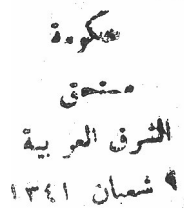 حكومة
مستحق
الشرق العربية
٩ شعبان ١٣٤١